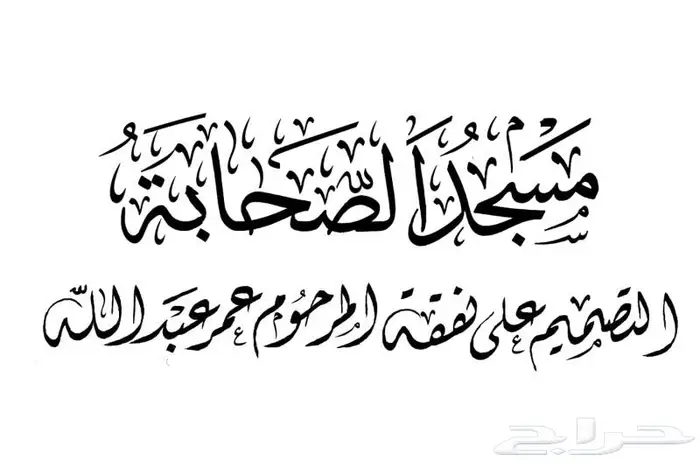 مَسْجِدُ الصَّحَابَةُ
التصميم على نفقة المرحوم عمر عبد الله
حراج